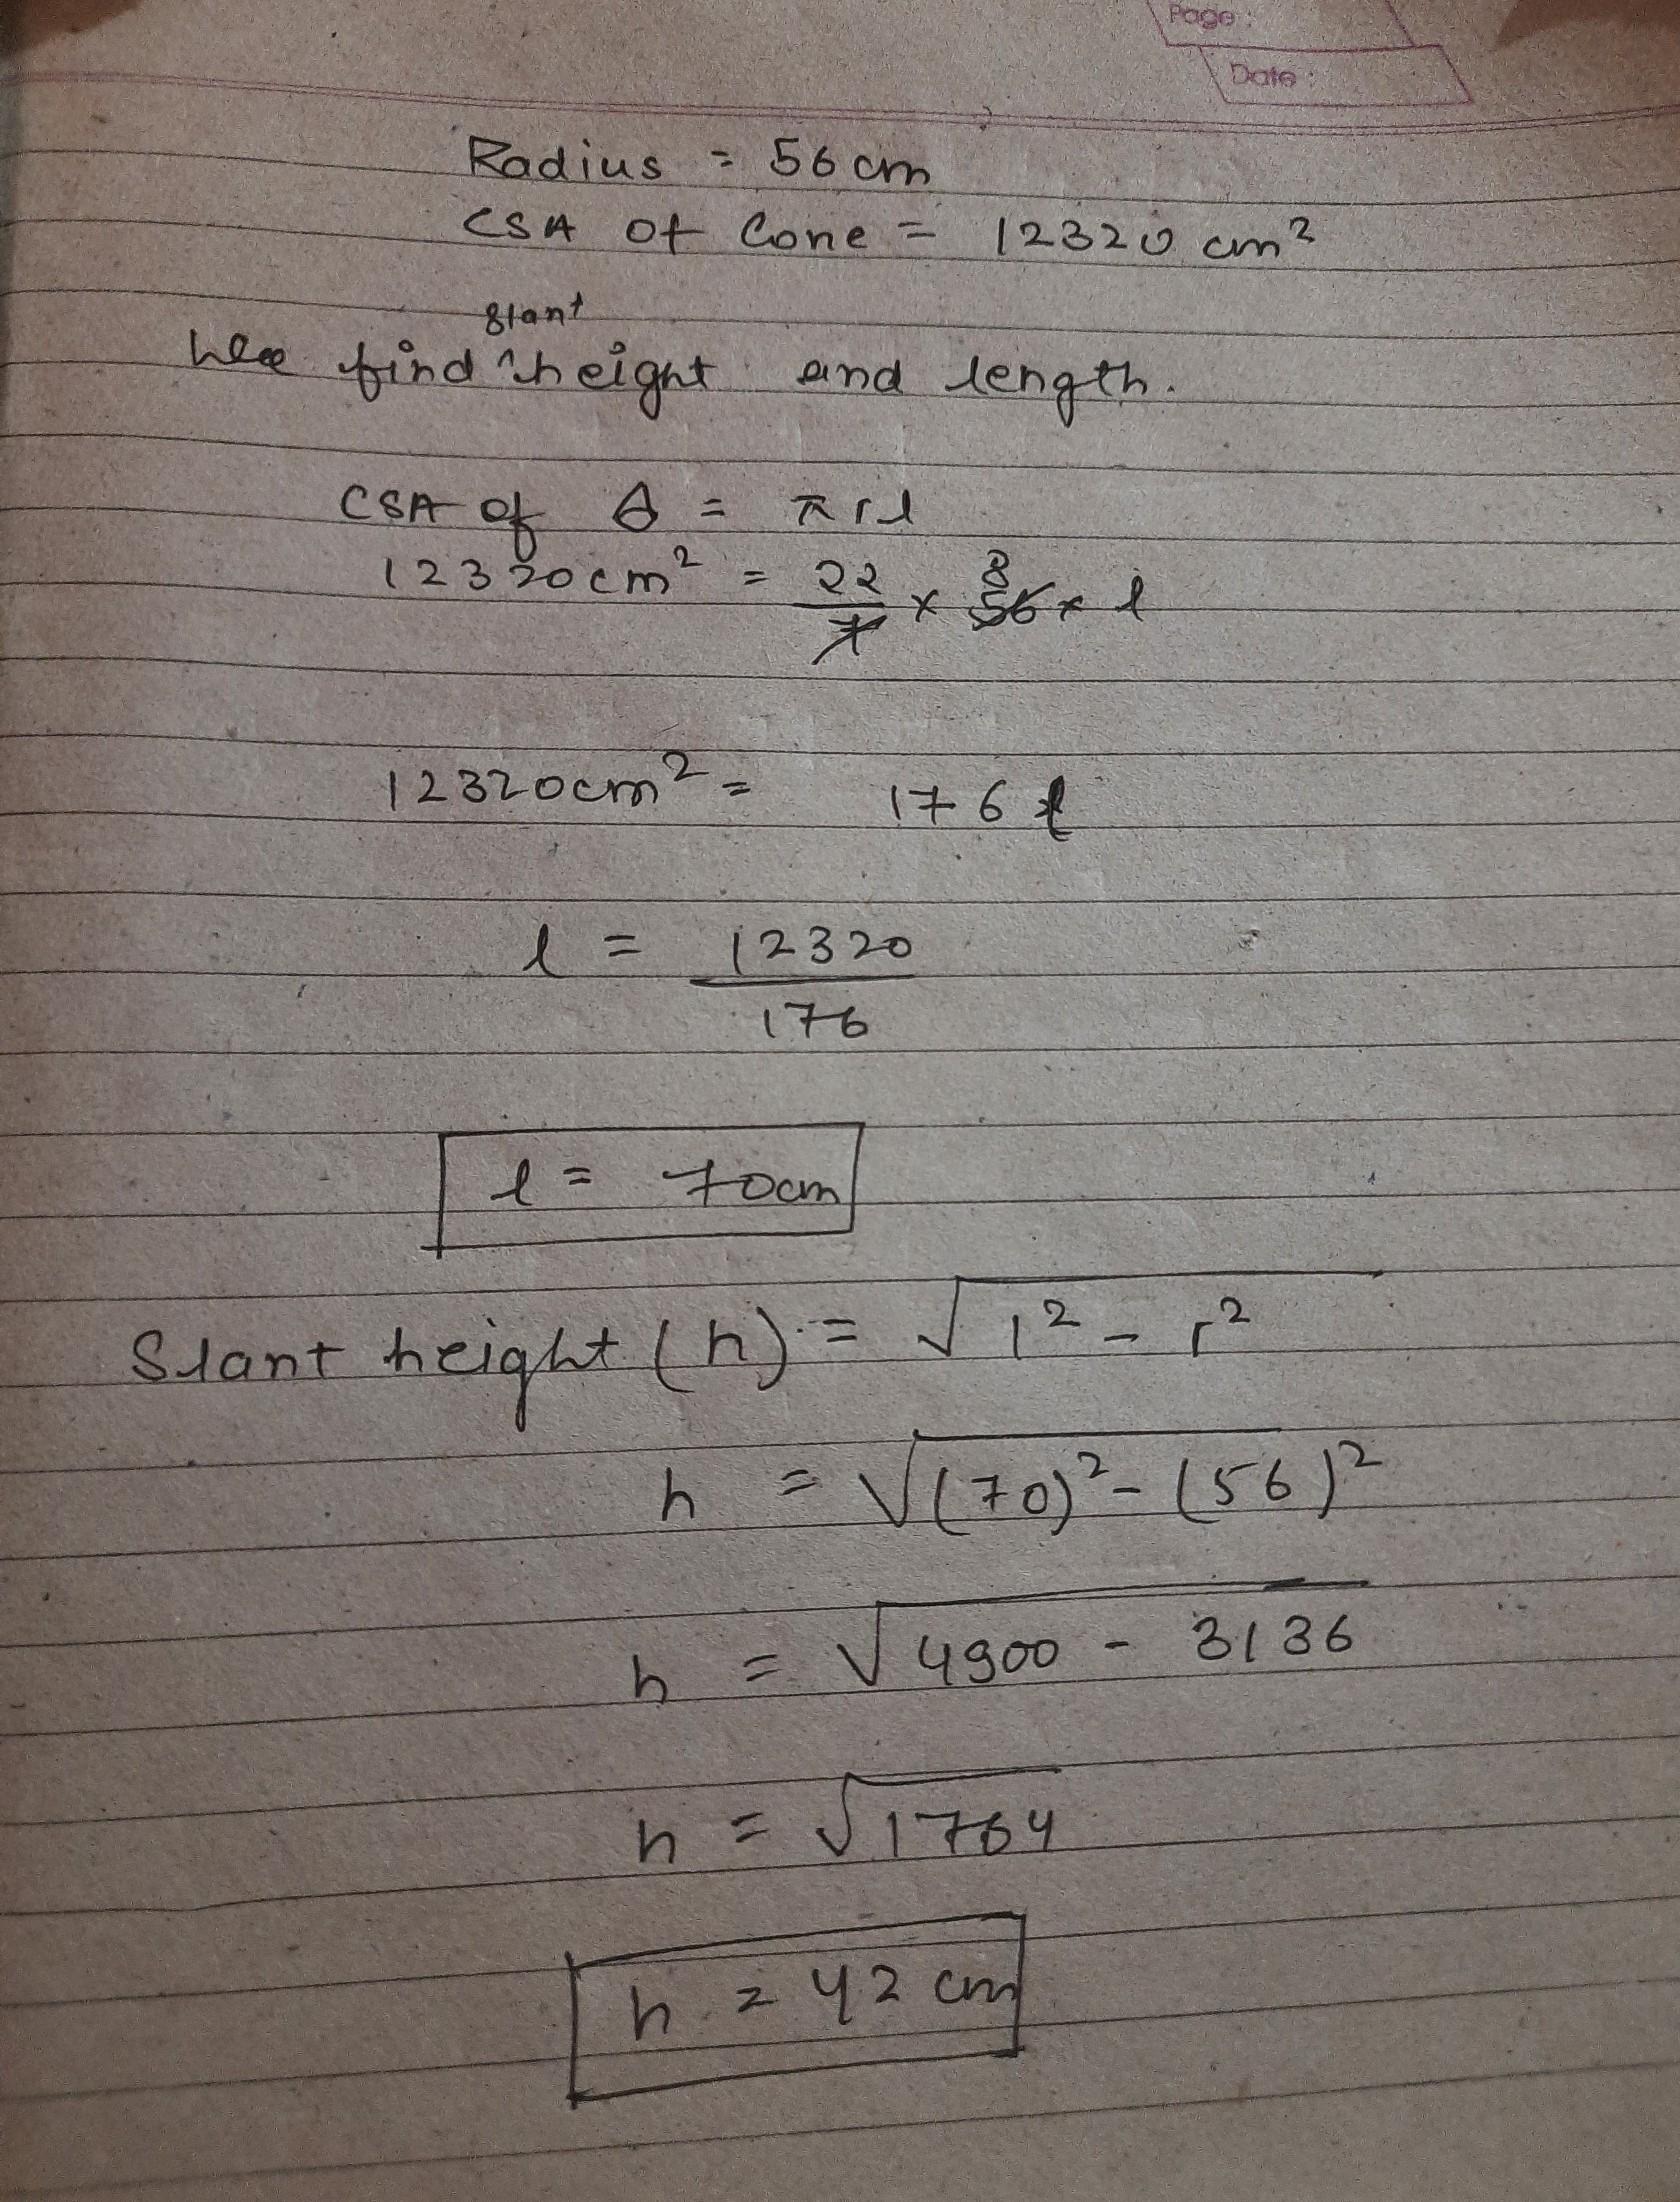 Page :
Date :
Radius = 56 cm
CSA of Cone = 12320 cm²
slant
find ^height and length.
CSA of = πrl
12320cm² = 22/7 × 56 8 × l
12320cm² = 176 l
l = 12320
176
l = 70cm
Slant height (h) = √l² - r²
h = √(70)² - (56)²
h = √4900 - 3136
h = √1764
h = 42 cm